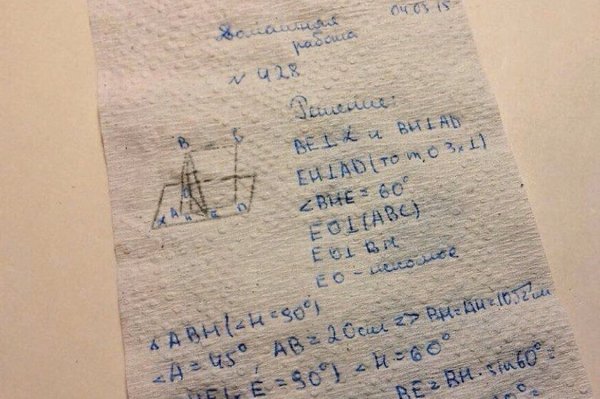 04.03.15
Домашняя
работа
№ 428
Решение:
BE⊥α и BH⊥AD
EH⊥AD (то т. о 3х⊥)
∠BHE = 60°
EO⊥(ABC)
EO⊥BH
EO - искомое
△ABH (∠H = 90°)
∠A = 45°, AB = 20см => BH = AH = 10√2см
E = 90°) ∠H = 60°
BE = BH · sin60° =